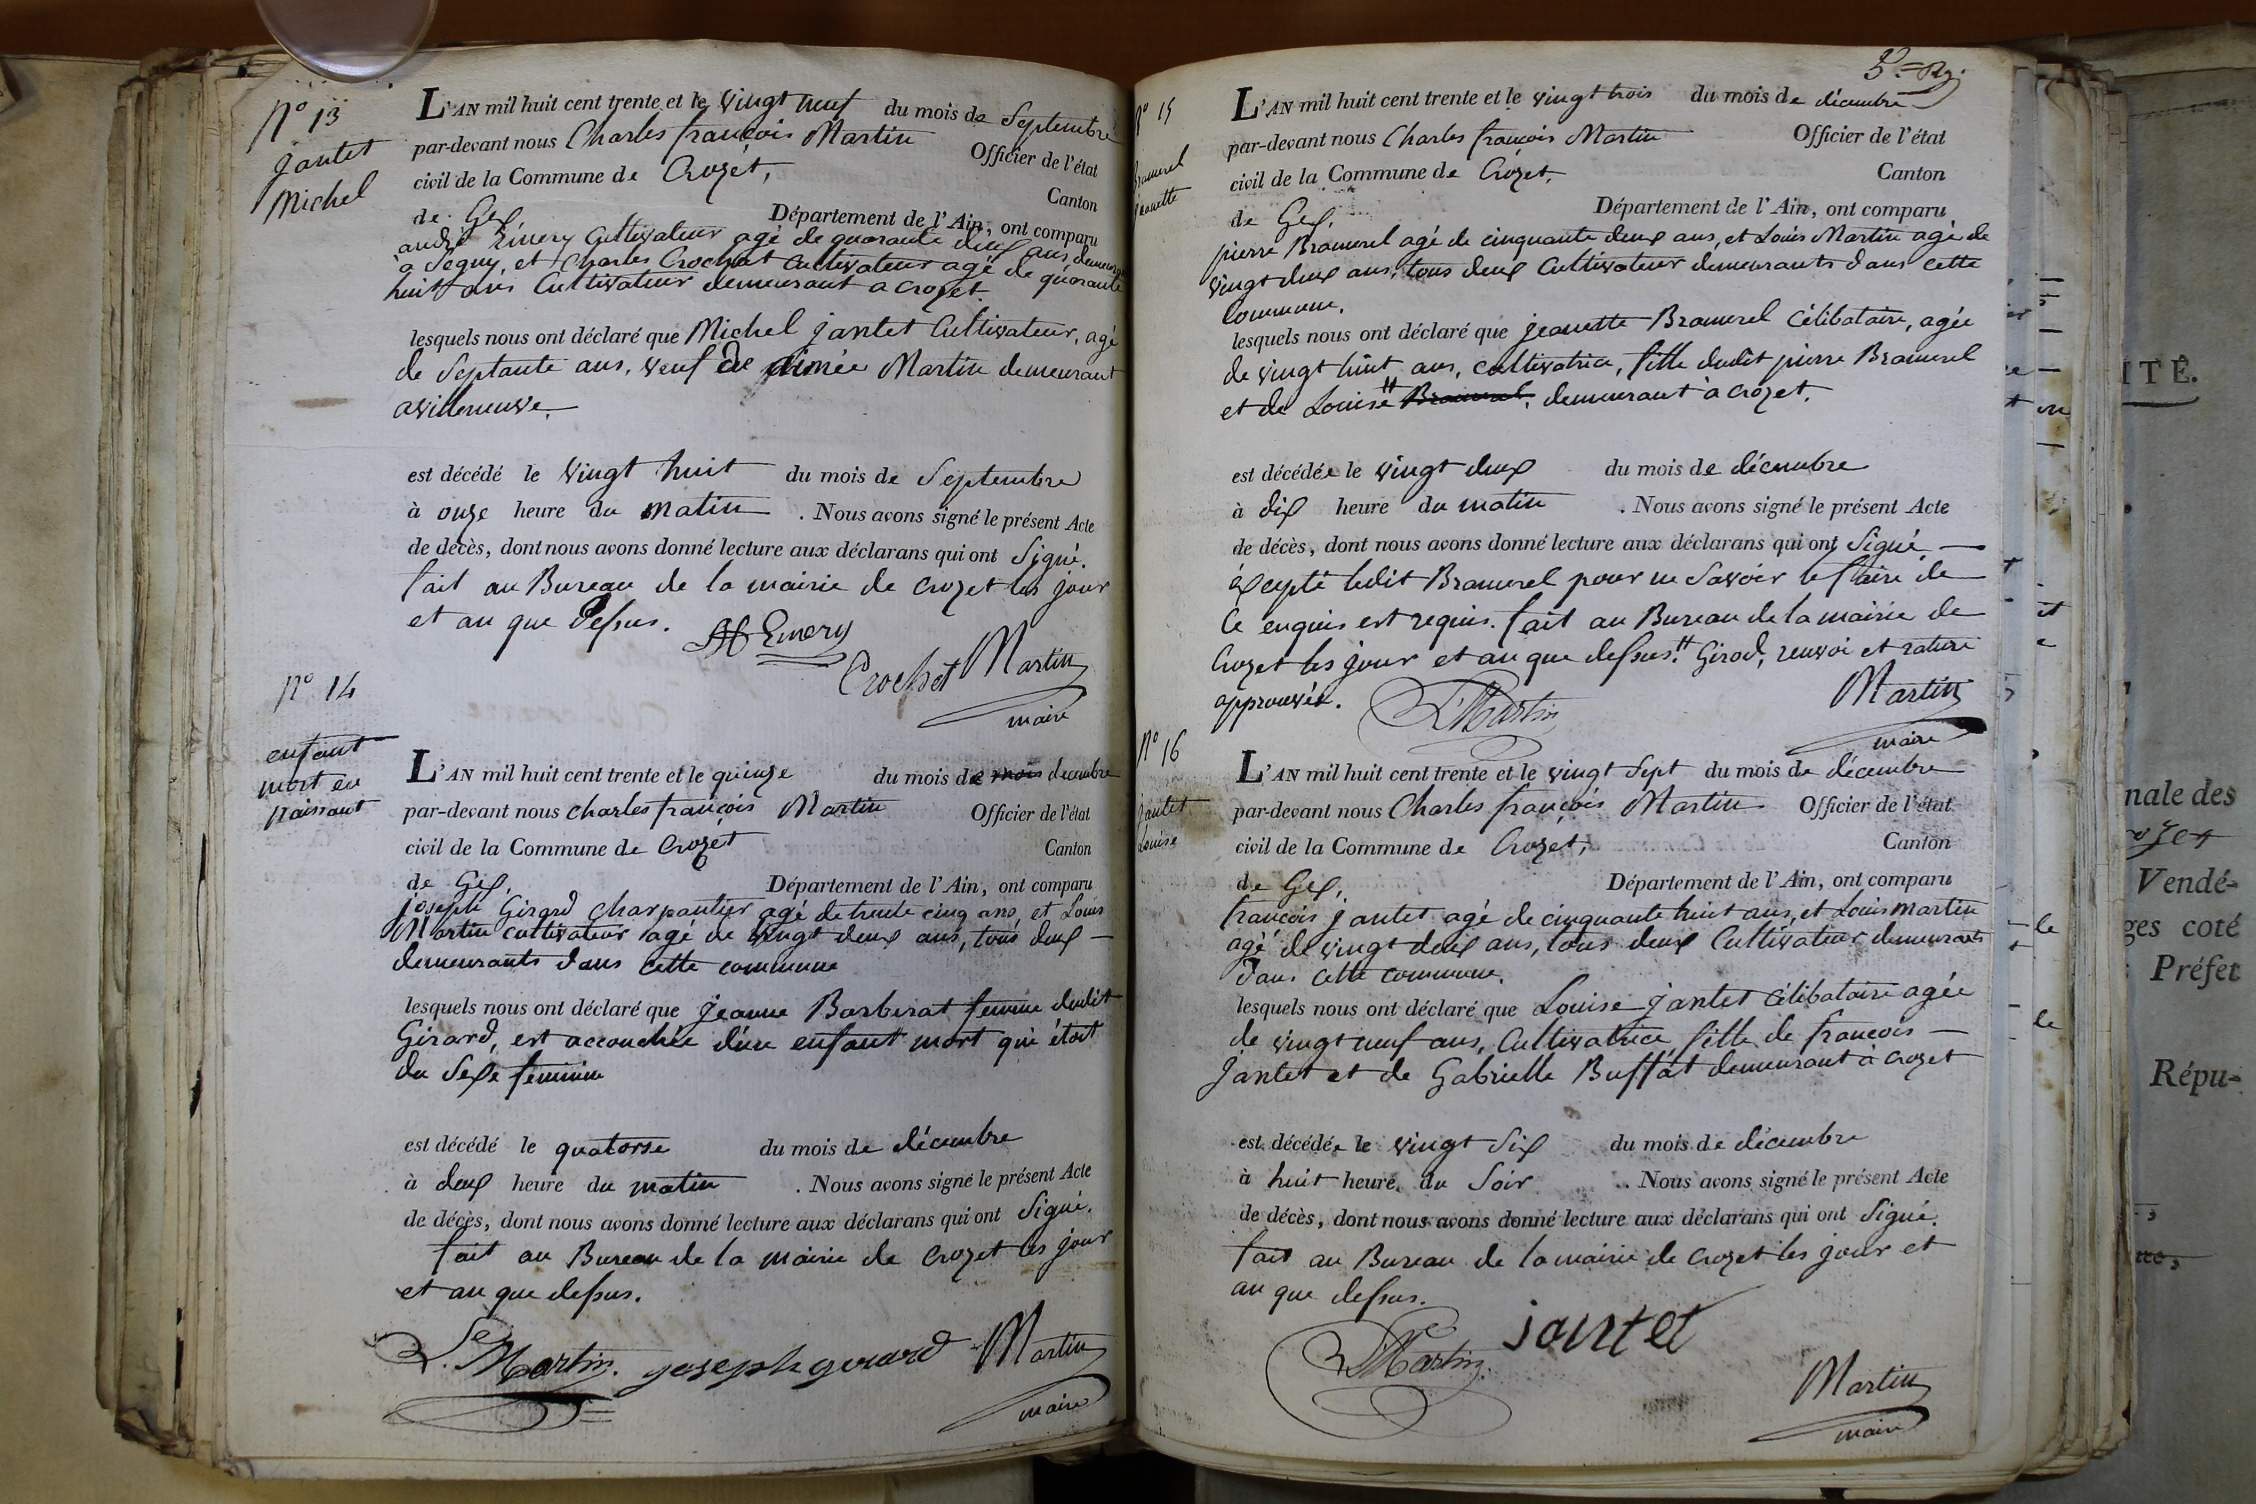 N° 13
jantet
Michel
L'AN mil huit cent trente et le vingt neuf du mois de Septembre
par-devant nous Charles françois Martin Officier de l'état
civil de la Commune de Crozet, Canton
de Gex, Département de l'Ain, ont comparu
andré Emery Cultivateur agé de quarante deux ans demeurant
à Segny, et Charles Crochet Cultivateur agé de quarante
huit ans Cultivateur demeurant a crozet.
lesquels nous ont déclaré que Michel jantet Cultivateur, agé
de Septante ans, veuf de aimée Martin demeurant
avilleneuve.
est décédé le vingt huit du mois de Septembre
à onze heure du matin . Nous avons signé le présent Acte
de décès, dont nous avons donné lecture aux déclarans qui ont Signé.
fait au Bureau de la mairie de crozet les jour
et an que dessus.
Emery
Crochet Martin
maire
N° 14
enfant
mort en
naissant
L'AN mil huit cent trente et le quinze du mois de mois decembre
par-devant nous charles françois Martin Officier de l'état
civil de la Commune de Crozet Canton
de Gex, Département de l'Ain, ont comparu
joseph Girard charpantier agé de trente cinq ans, et Louis
Martin cultivateur agé de vingt deux ans, tous deux
demeurants dans cette commune
lesquels nous ont déclaré que jeanne Barberat femme dudit
Girard, est accouchée d'un enfant mort qui étoit
du Sexe féminin
est décédé le quatorse du mois de décembre
à deux heure du matin . Nous avons signé le présent Acte
de décès, dont nous avons donné lecture aux déclarans qui ont Signé.
fait au Bureau de la mairie de crozet les jour
et an que dessus.
L. Martin. joseph gerard Martin
maire
N° 15
Bramerel
jeanette
L'AN mil huit cent trente et le vingt trois du mois de décembre
par-devant nous Charles françois Martin Officier de l'état
civil de la Commune de Crozet, Canton
de Gex, Département de l'Ain, ont comparu
pierre Bramerel agé de cinquante deux ans, et Louis Martin agé de
vingt deux ans, tous deux Cultivateur demeurants dans cette
commune.
lesquels nous ont déclaré que jeanette Bramerel célibataire, agée
de vingt huit ans, cultivatrice, fille dudit pierre Bramerel
et de Louise # Bramerel, demeurant à crozet.
est décédée le vingt deux du mois de décembre
à dix heure du matin . Nous avons signé le présent Acte
de décès, dont nous avons donné lecture aux déclarans qui ont Signé
éxcepté ledit Bramerel pour ne Savoir le faire de
ce enquis est requis. fait au Bureau de la mairie de
Crozet les jour et an que dessus. # Girod, renvoi et rature
approuvée.
L. Martin Martin
maire
N° 16
jantet
Louise
L'AN mil huit cent trente et le vingt Sept du mois de décembre
par-devant nous Charles françois Martin Officier de l'état
civil de la Commune de Crozet, Canton
de Gex, Département de l'Ain, ont comparu
françois jantet agé de cinquante huit ans, et Louis martin
agé de vingt deux ans, tous deux Cultivateur demeurants
dans cette commune.
lesquels nous ont déclaré que Louise jantet célibataire agée
de vingt neuf ans, Cultivatrice, fille de françois
jantet et de Gabrielle Buffat demeurant à crozet
est décédée le vingt Six du mois de décembre
à huit heure du Soir . Nous avons signé le présent Acte
de décès, dont nous avons donné lecture aux déclarans qui ont Signé.
fait au Bureau de la mairie de crozet les jour et
an que dessus.
L. Martin. jantet
Martin
maire
ITÉ.
nale des
Vendé-
ges coté
Préfet
Répu-